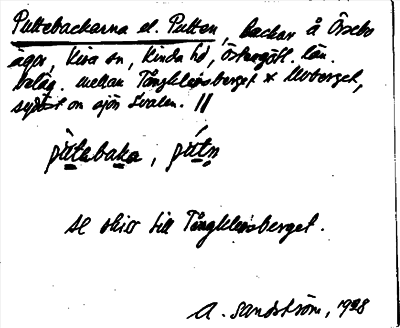 Puttebackarna el. Putten, backar å Örsebo
ägor, Kisa sn, Kinda hd, Östergötl. län.
Beläg. mellan Tångklevsberget & Moberget,
sydöst om sjön Svalen. //
pùtebaka, pútn
se skiss till Tångklevsberget.
A. Sandström, 1928